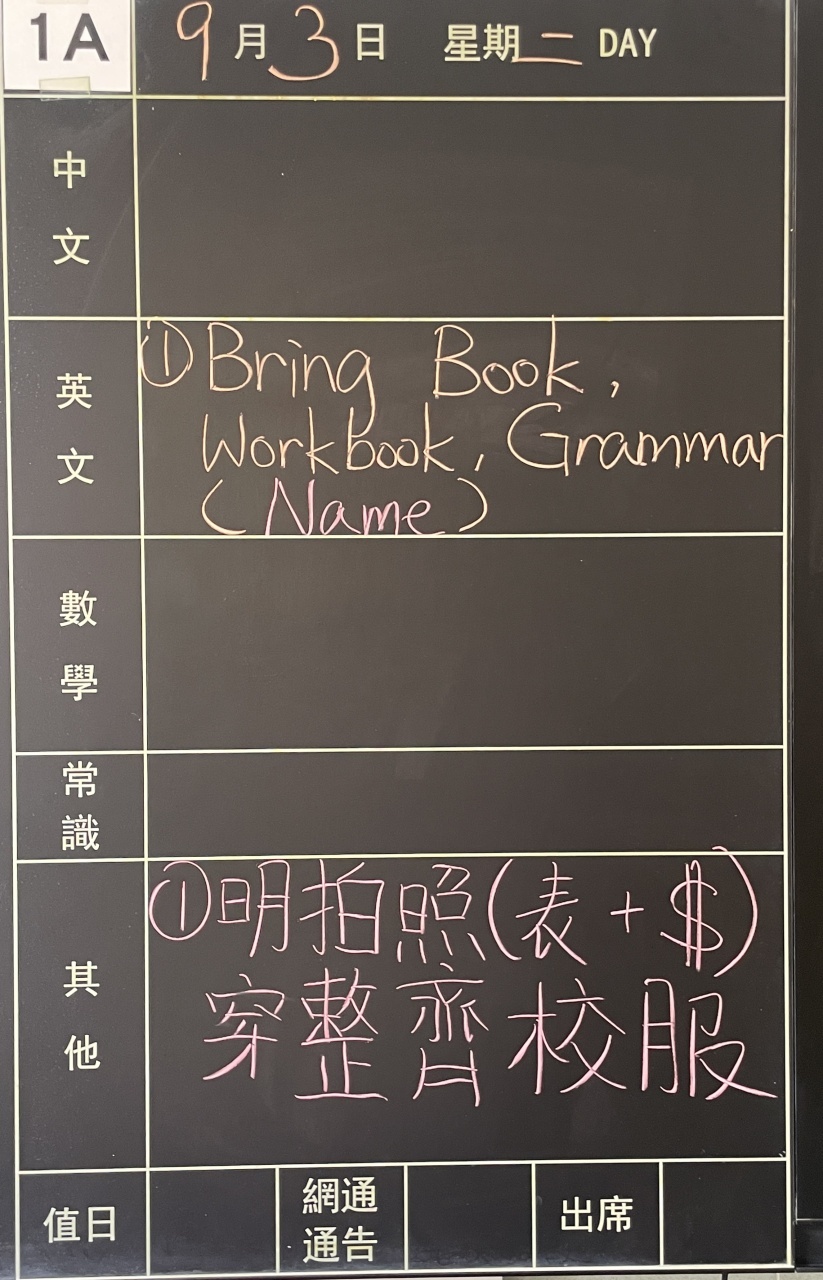 1A
9月3日 星期二 DAY
中文
英文
① Bring Book,
Workbook, Grammar
(Name)
數學
常識
其他
①明拍照(表+$)
穿整齊校服
值日
網通
通告
出席